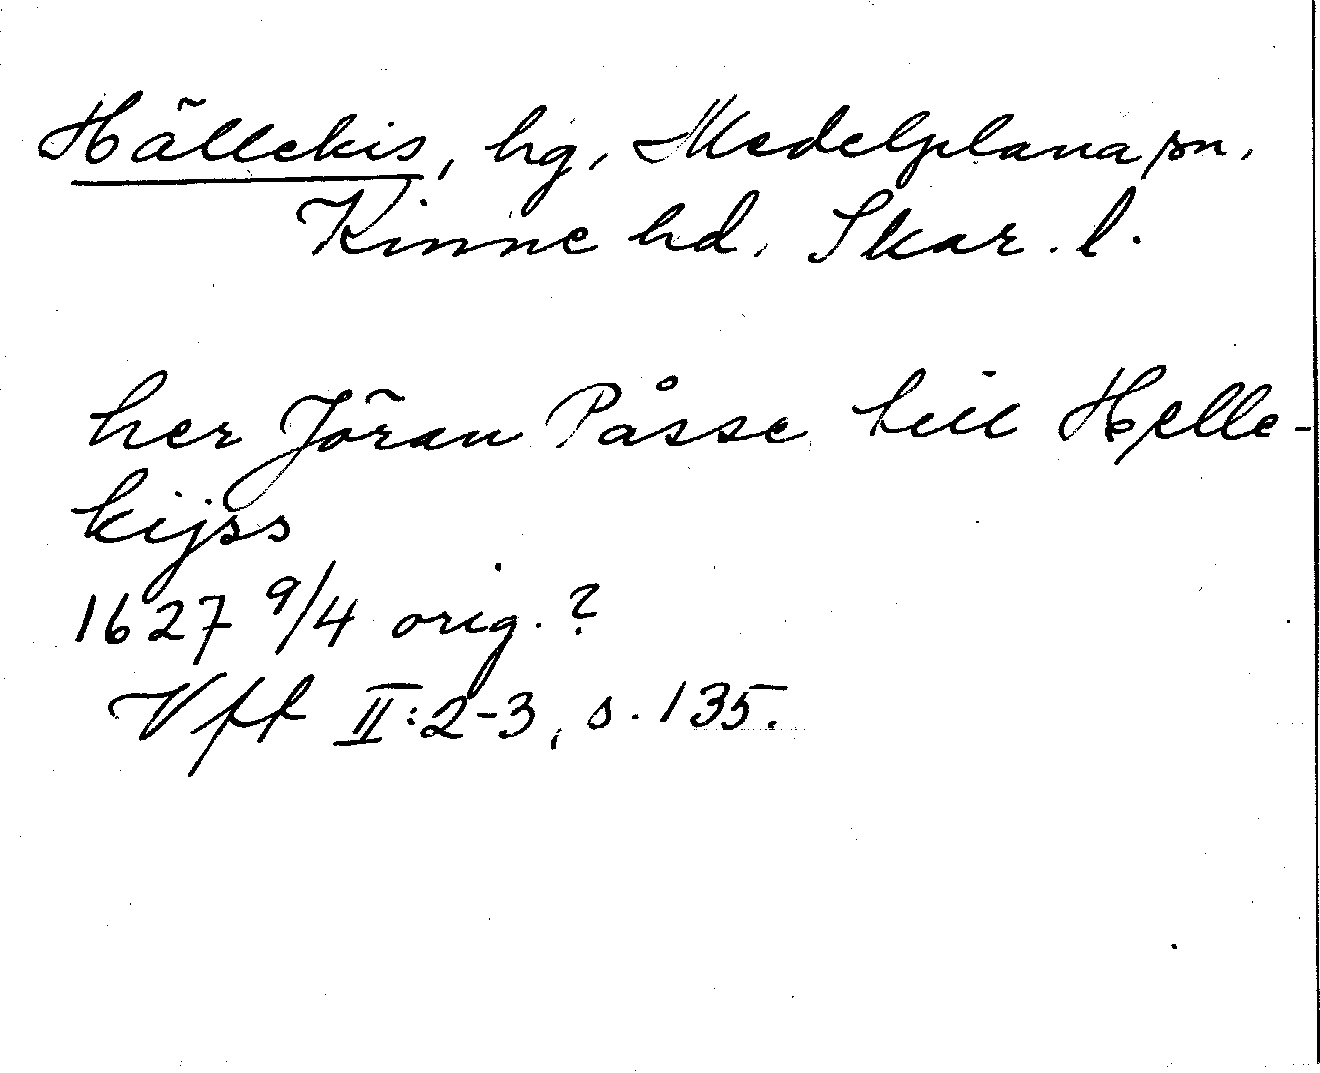 Hällekis, hg, Medelplana sn,
Kinne hd, Skar. l.
her Jöran Påsse till Helle-
kijss
1627 9/4 orig. ?
Vff II:2-3, s. 135.